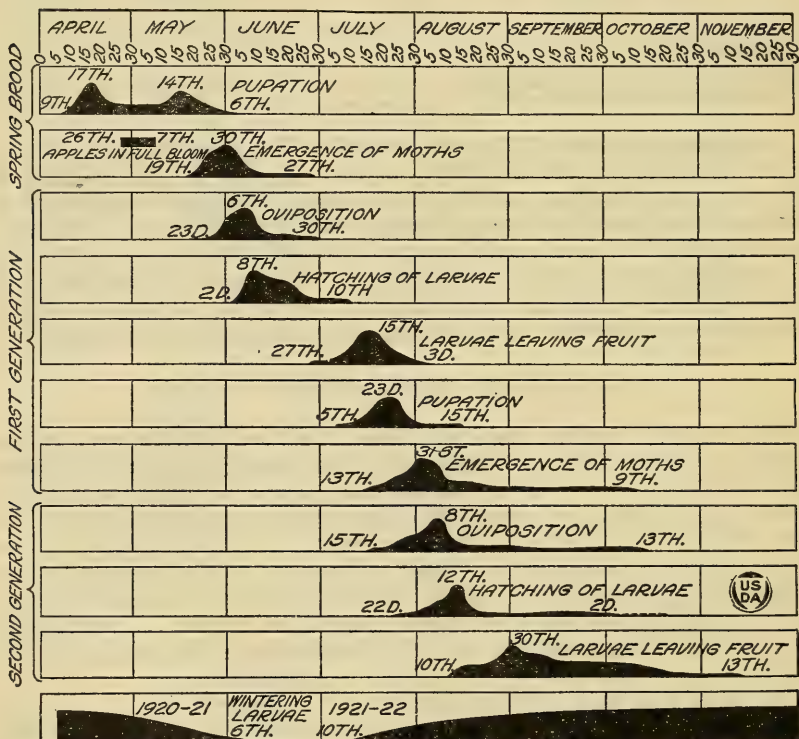 APRIL MAY JUNE JULY AUGUST SEPTEMBER OCTOBER NOVEMBER
0 5 10 15 20 25 30 5 10 15 20 25 30 5 10 15 20 25 30 5 10 15 20 25 30 5 10 15 20 25 30 5 10 15 20 25 30 5 10 15 20 25 30 5 10 15 20 25 30
SPRING BROOD
17TH. 14TH. PUPATION
9TH. 6TH.
26TH. 7TH. 30TH.
APPLES IN FULL BLOOM EMERGENCE OF MOTHS
19TH. 27TH.
FIRST GENERATION
6TH.
OVIPOSITION
23D. 30TH.
8TH.
HATCHING OF LARVAE
2D. 10TH
15TH.
LARVAE LEAVING FRUIT
27TH. 3D.
23D.
PUPATION
5TH. 15TH.
31ST.
EMERGENCE OF MOTHS
13TH. 9TH.
SECOND GENERATION
8TH.
OVIPOSITION
15TH. 13TH.
12TH.
HATCHING OF LARVAE
22D. 2D.
US
DA
30TH.
LARVAE LEAVING FRUIT
10TH. 13TH.
1920-21 WINTERING 1921-22
LARVAE
6TH. 10TH.